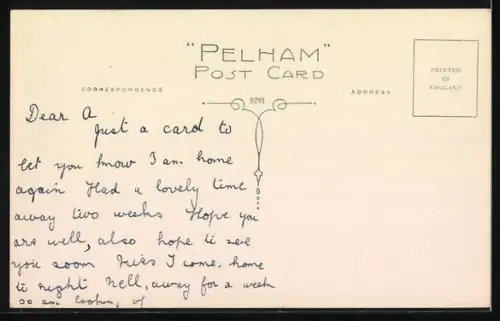 "PELHAM"
POST CARD
CORRESPONDENCE
ADDRESS
PRINTED
IN
ENGLAND
8291
Dear A
Just a card to
let you know I am home
again Had a lovely time
away two weeks Hope you
are well, also hope to see
you soon Miss I come home
to night Nell, away for a week
so am of